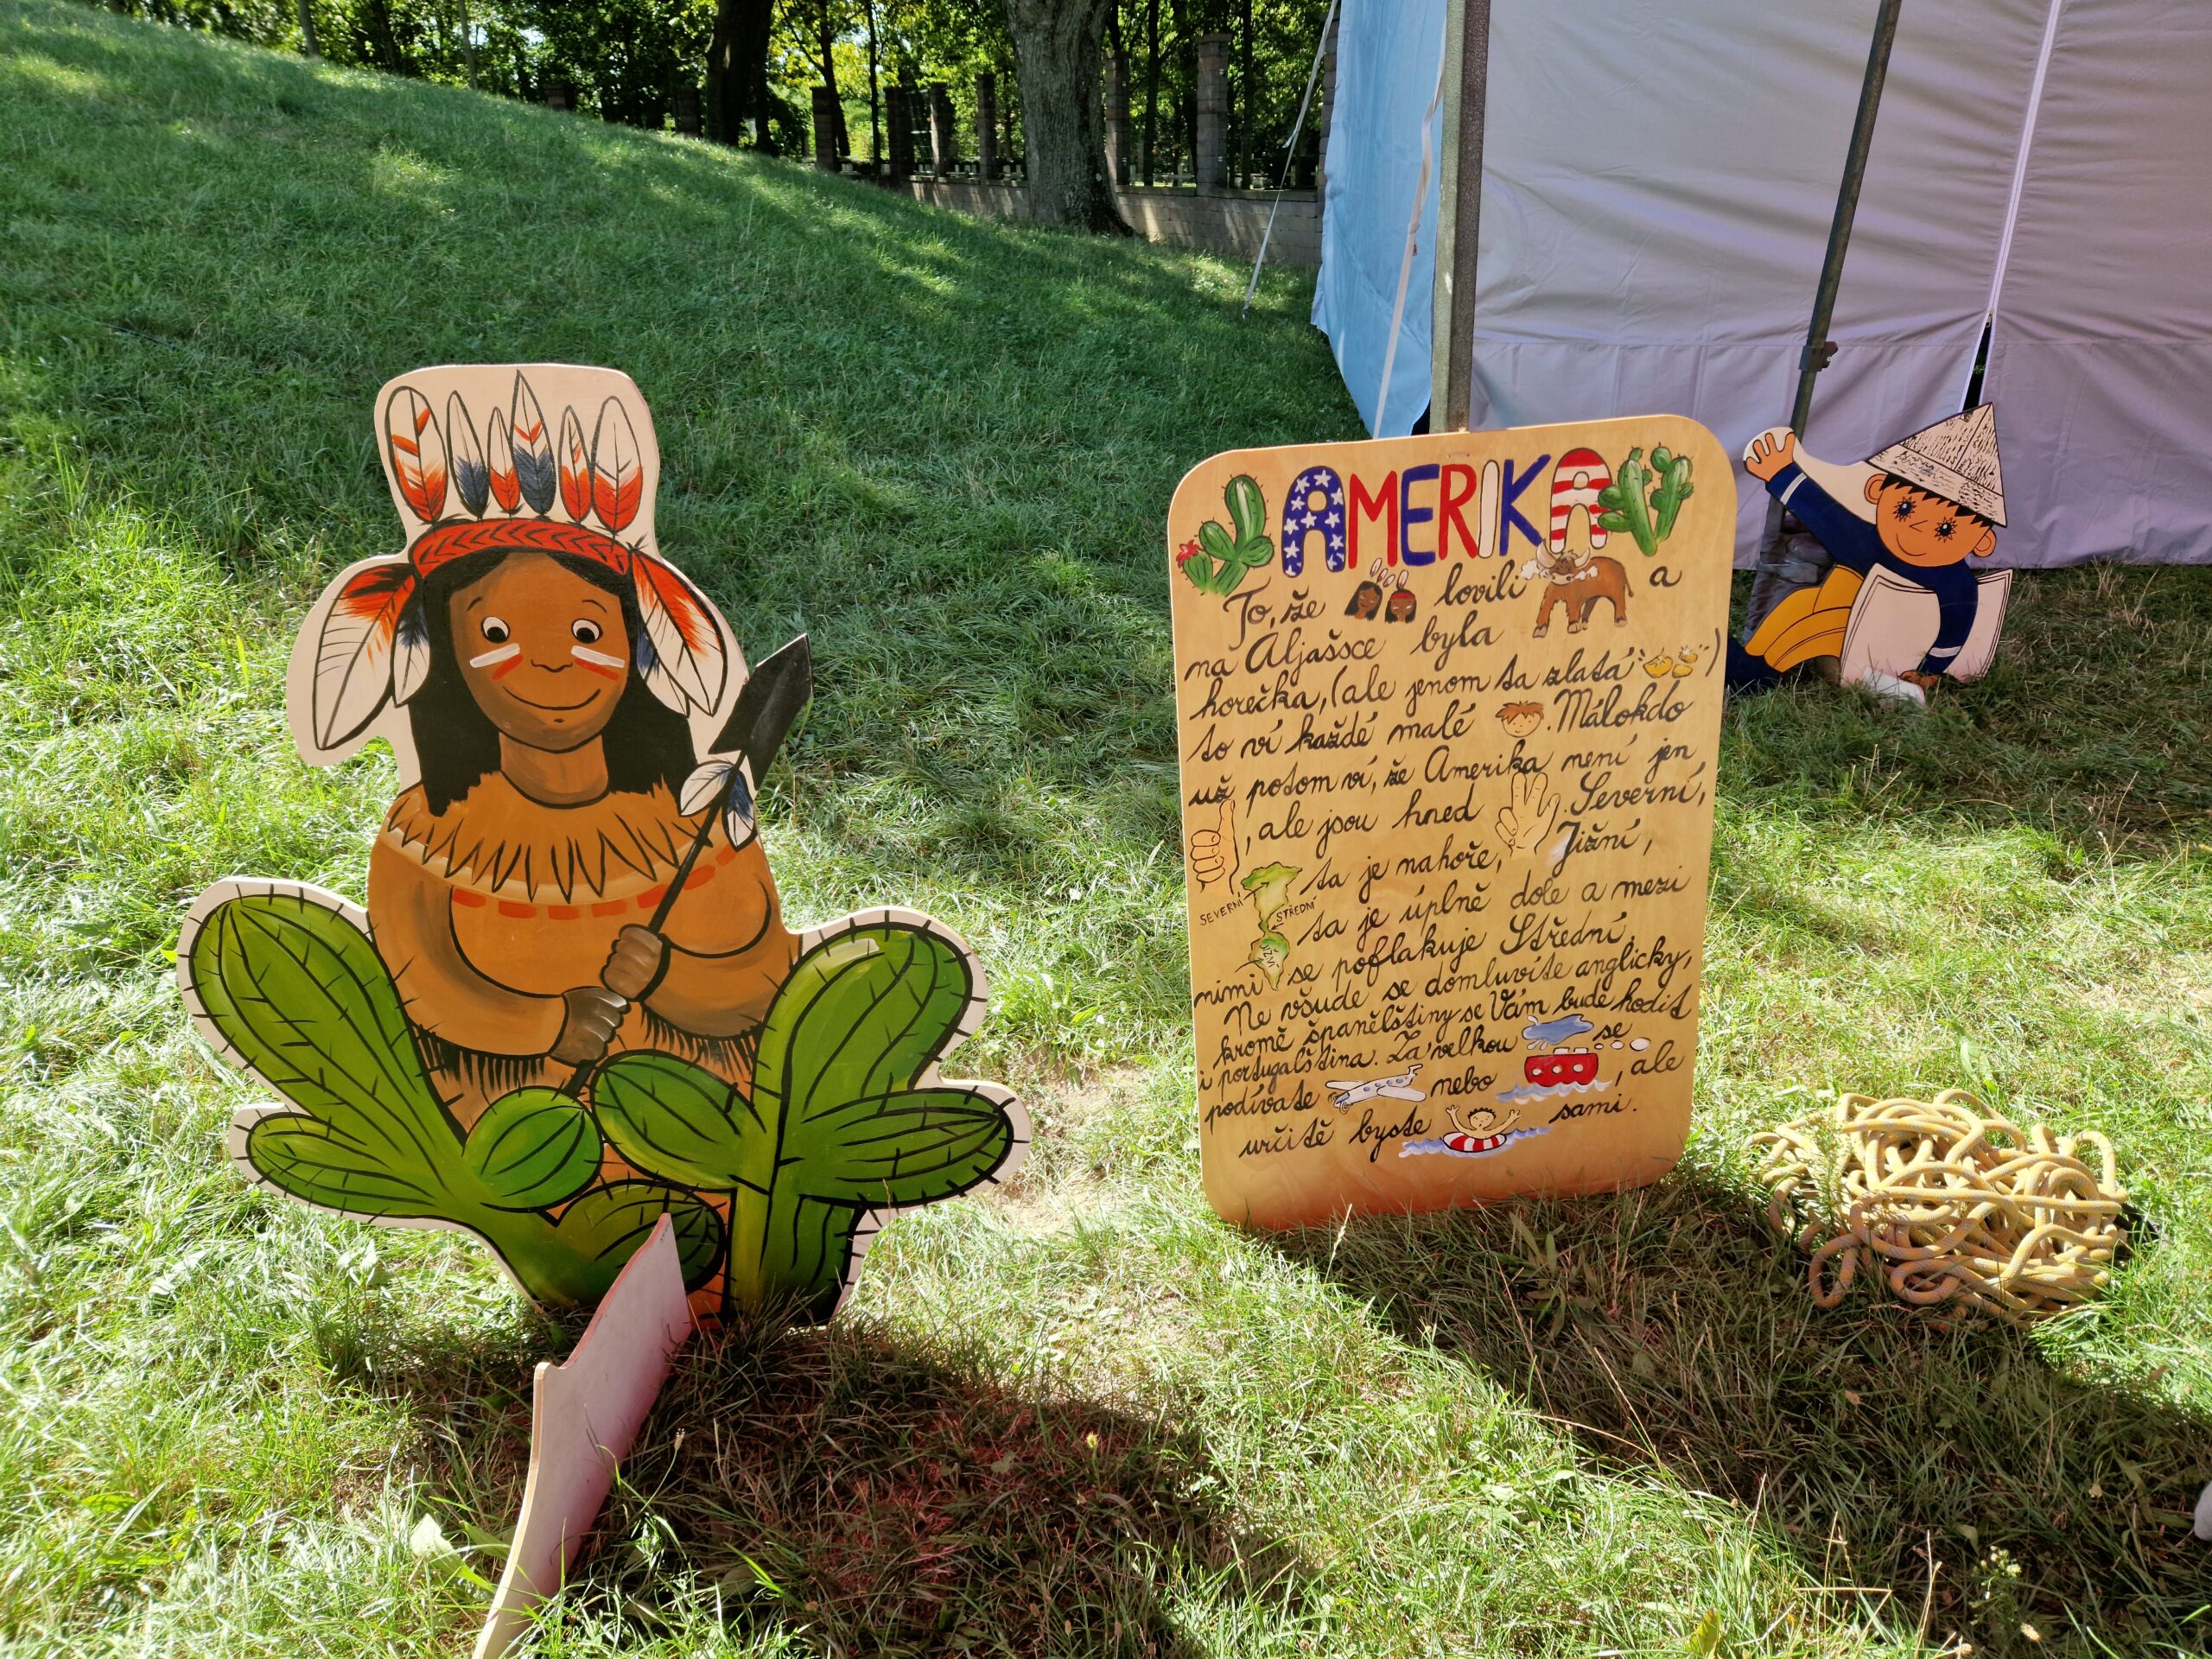 AMERIKA
To, že lovili a
na Aljašsce byla
horečka, (ale jenom ta zlatá )
to ví každé malé . Málokdo
už potom ví, že Amerika není jen
, ale jsou hned . Severní,
ta je nahoře, Jižní,
SEVERNÍ
STŘEDNÍ
JIŽNÍ
ta je úplně dole a mezi
nimi se poflakuje Střední.
Ne všude se domluvíte anglicky,
kromě španělštiny se Vám bude hodit
i portugalština. Za velkou se
podívate nebo , ale
určitě byste sami.